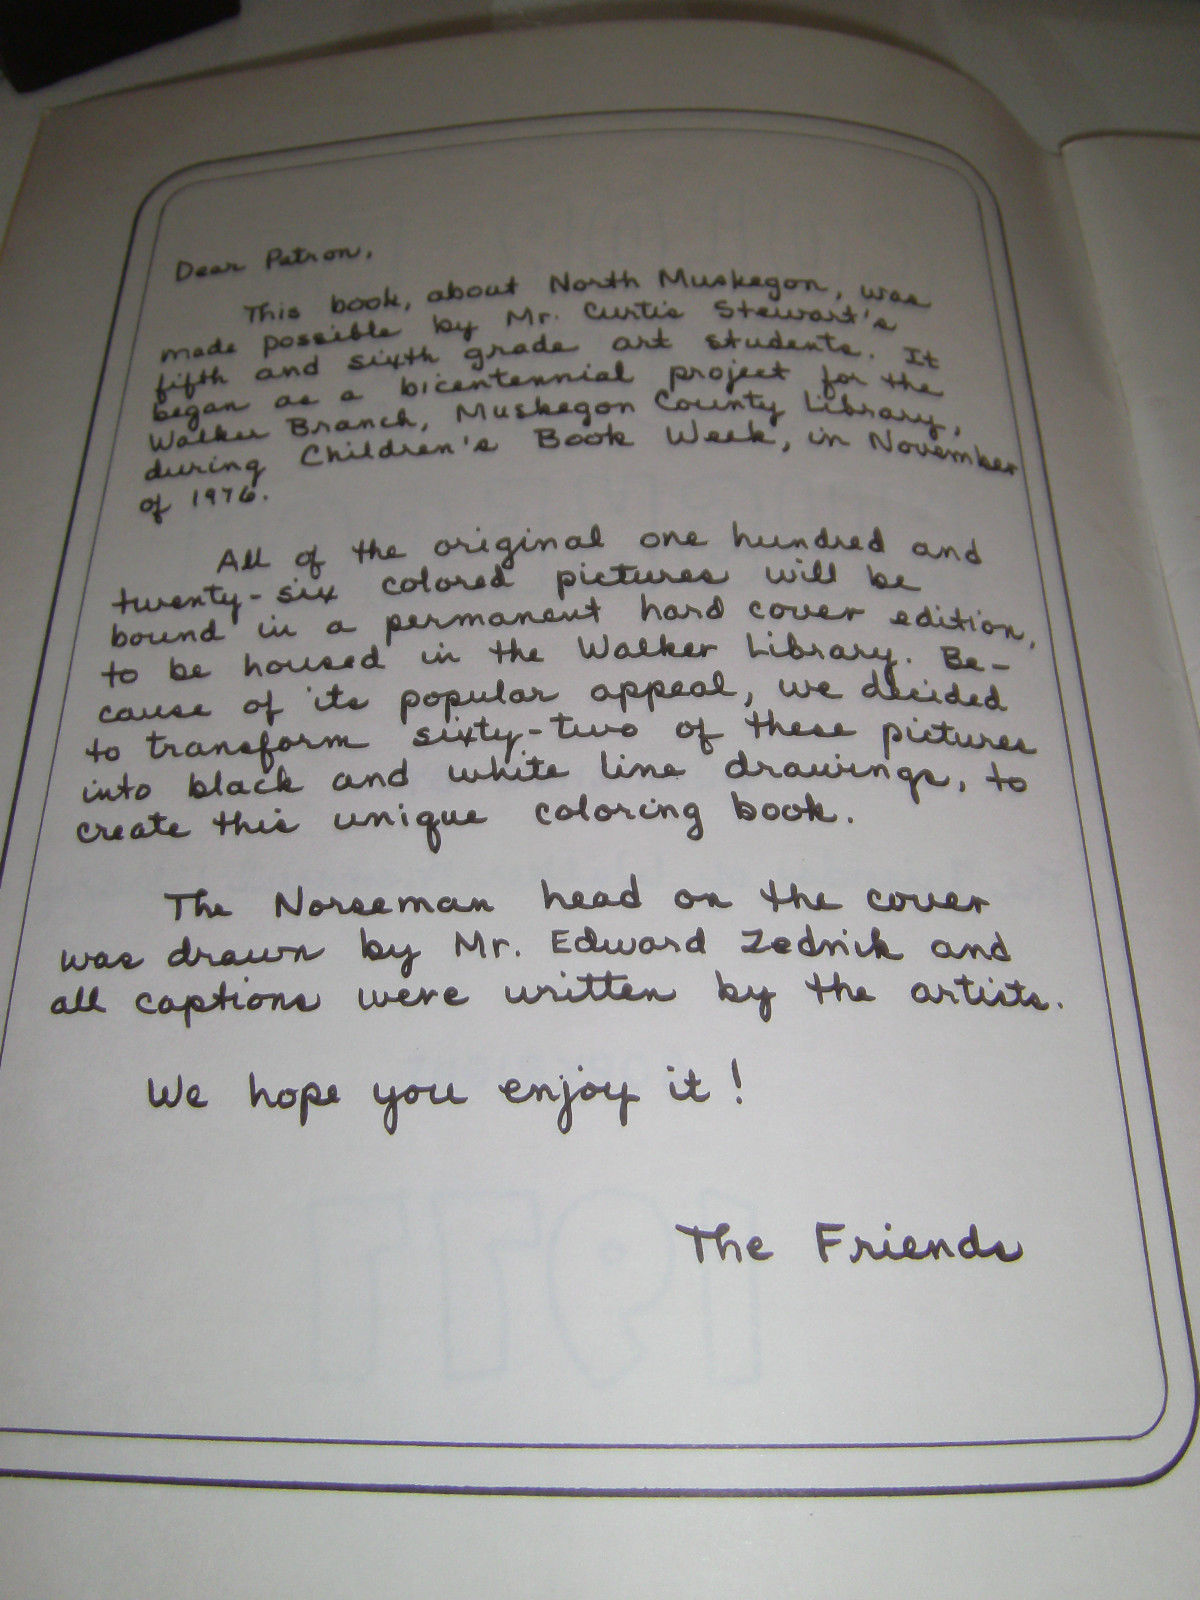 Dear Patron,
This book, about North Muskegon, was
made possible by Mr. Curtis Stewart's
fifth and sixth grade art students. It
began as a bicentennial project for the
Walker Branch, Muskegon County Library,
during Children's Book Week, in November
of 1976.
All of the original one hundred and
twenty-six colored pictures will be
bound in a permanent hard cover edition,
to be housed in the Walker Library. Be-
cause of its popular appeal, we decided
to transform sixty-two of these pictures
into black and white line drawings, to
create this unique coloring book.
The Norseman head on the cover
was drawn by Mr. Edward Zednik and
all captions were written by the artists.
We hope you enjoy it!
The Friends